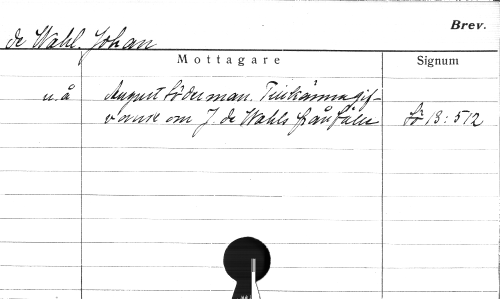 Brev.
de Wahl. Johan
Mottagare Signum
u.å August Söderman. Tillkännagif-
vande om J. de Wahls frånfälle Sö 13:512